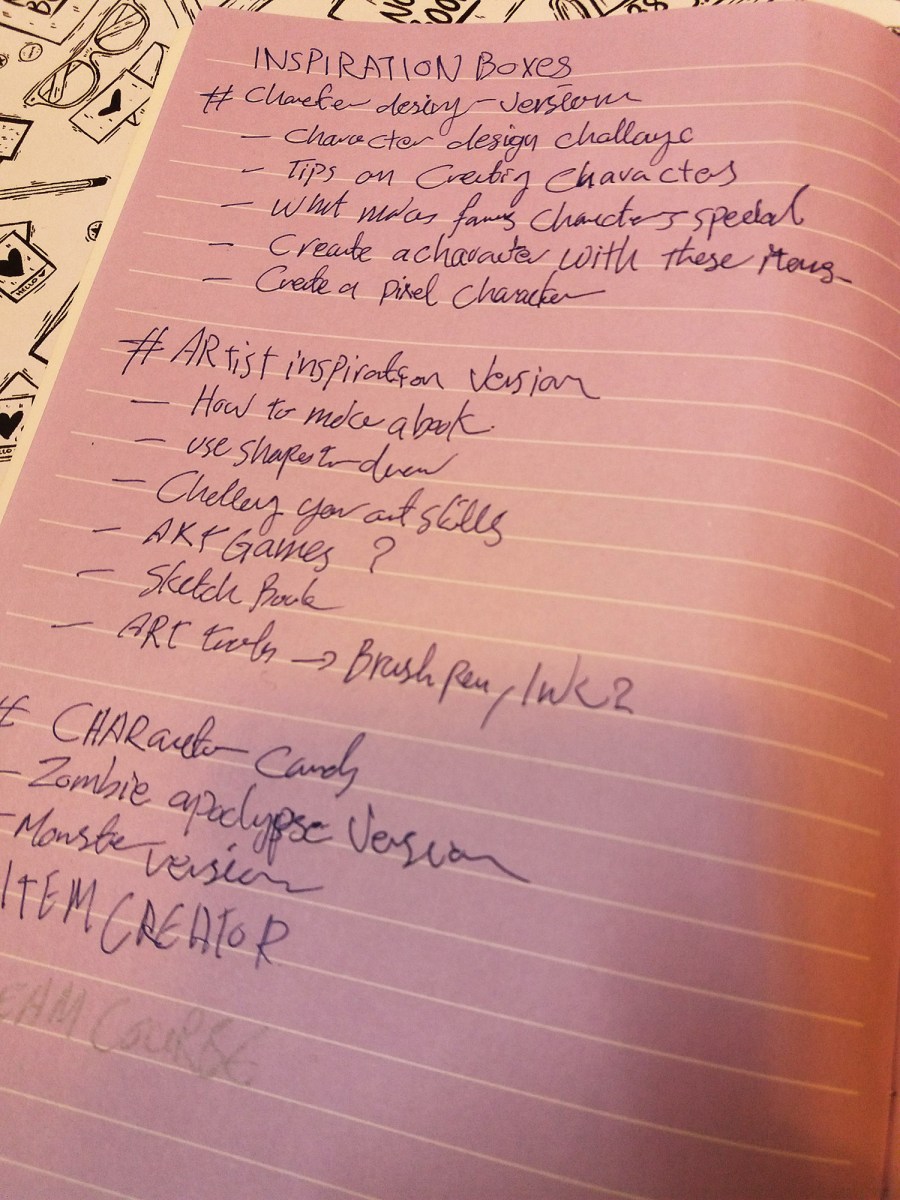 INSPIRATION BOXES
# Character design - version
- Character design challenge
- Tips on Creating Characters
- What makes famous Characters special
- Create a character with these items
- Create a pixel character
# ARtist inspiration Version
- How to make a book
- use shapes to draw
- Challeng your art skills
- ART Games ?
- Sketch Book
- ART tools → Brush pen, INK?
# CHARacter Cards
- Zombie apoclypse Version
- Monster version
ITEM CREATOR
EAM COURSE
HELLO